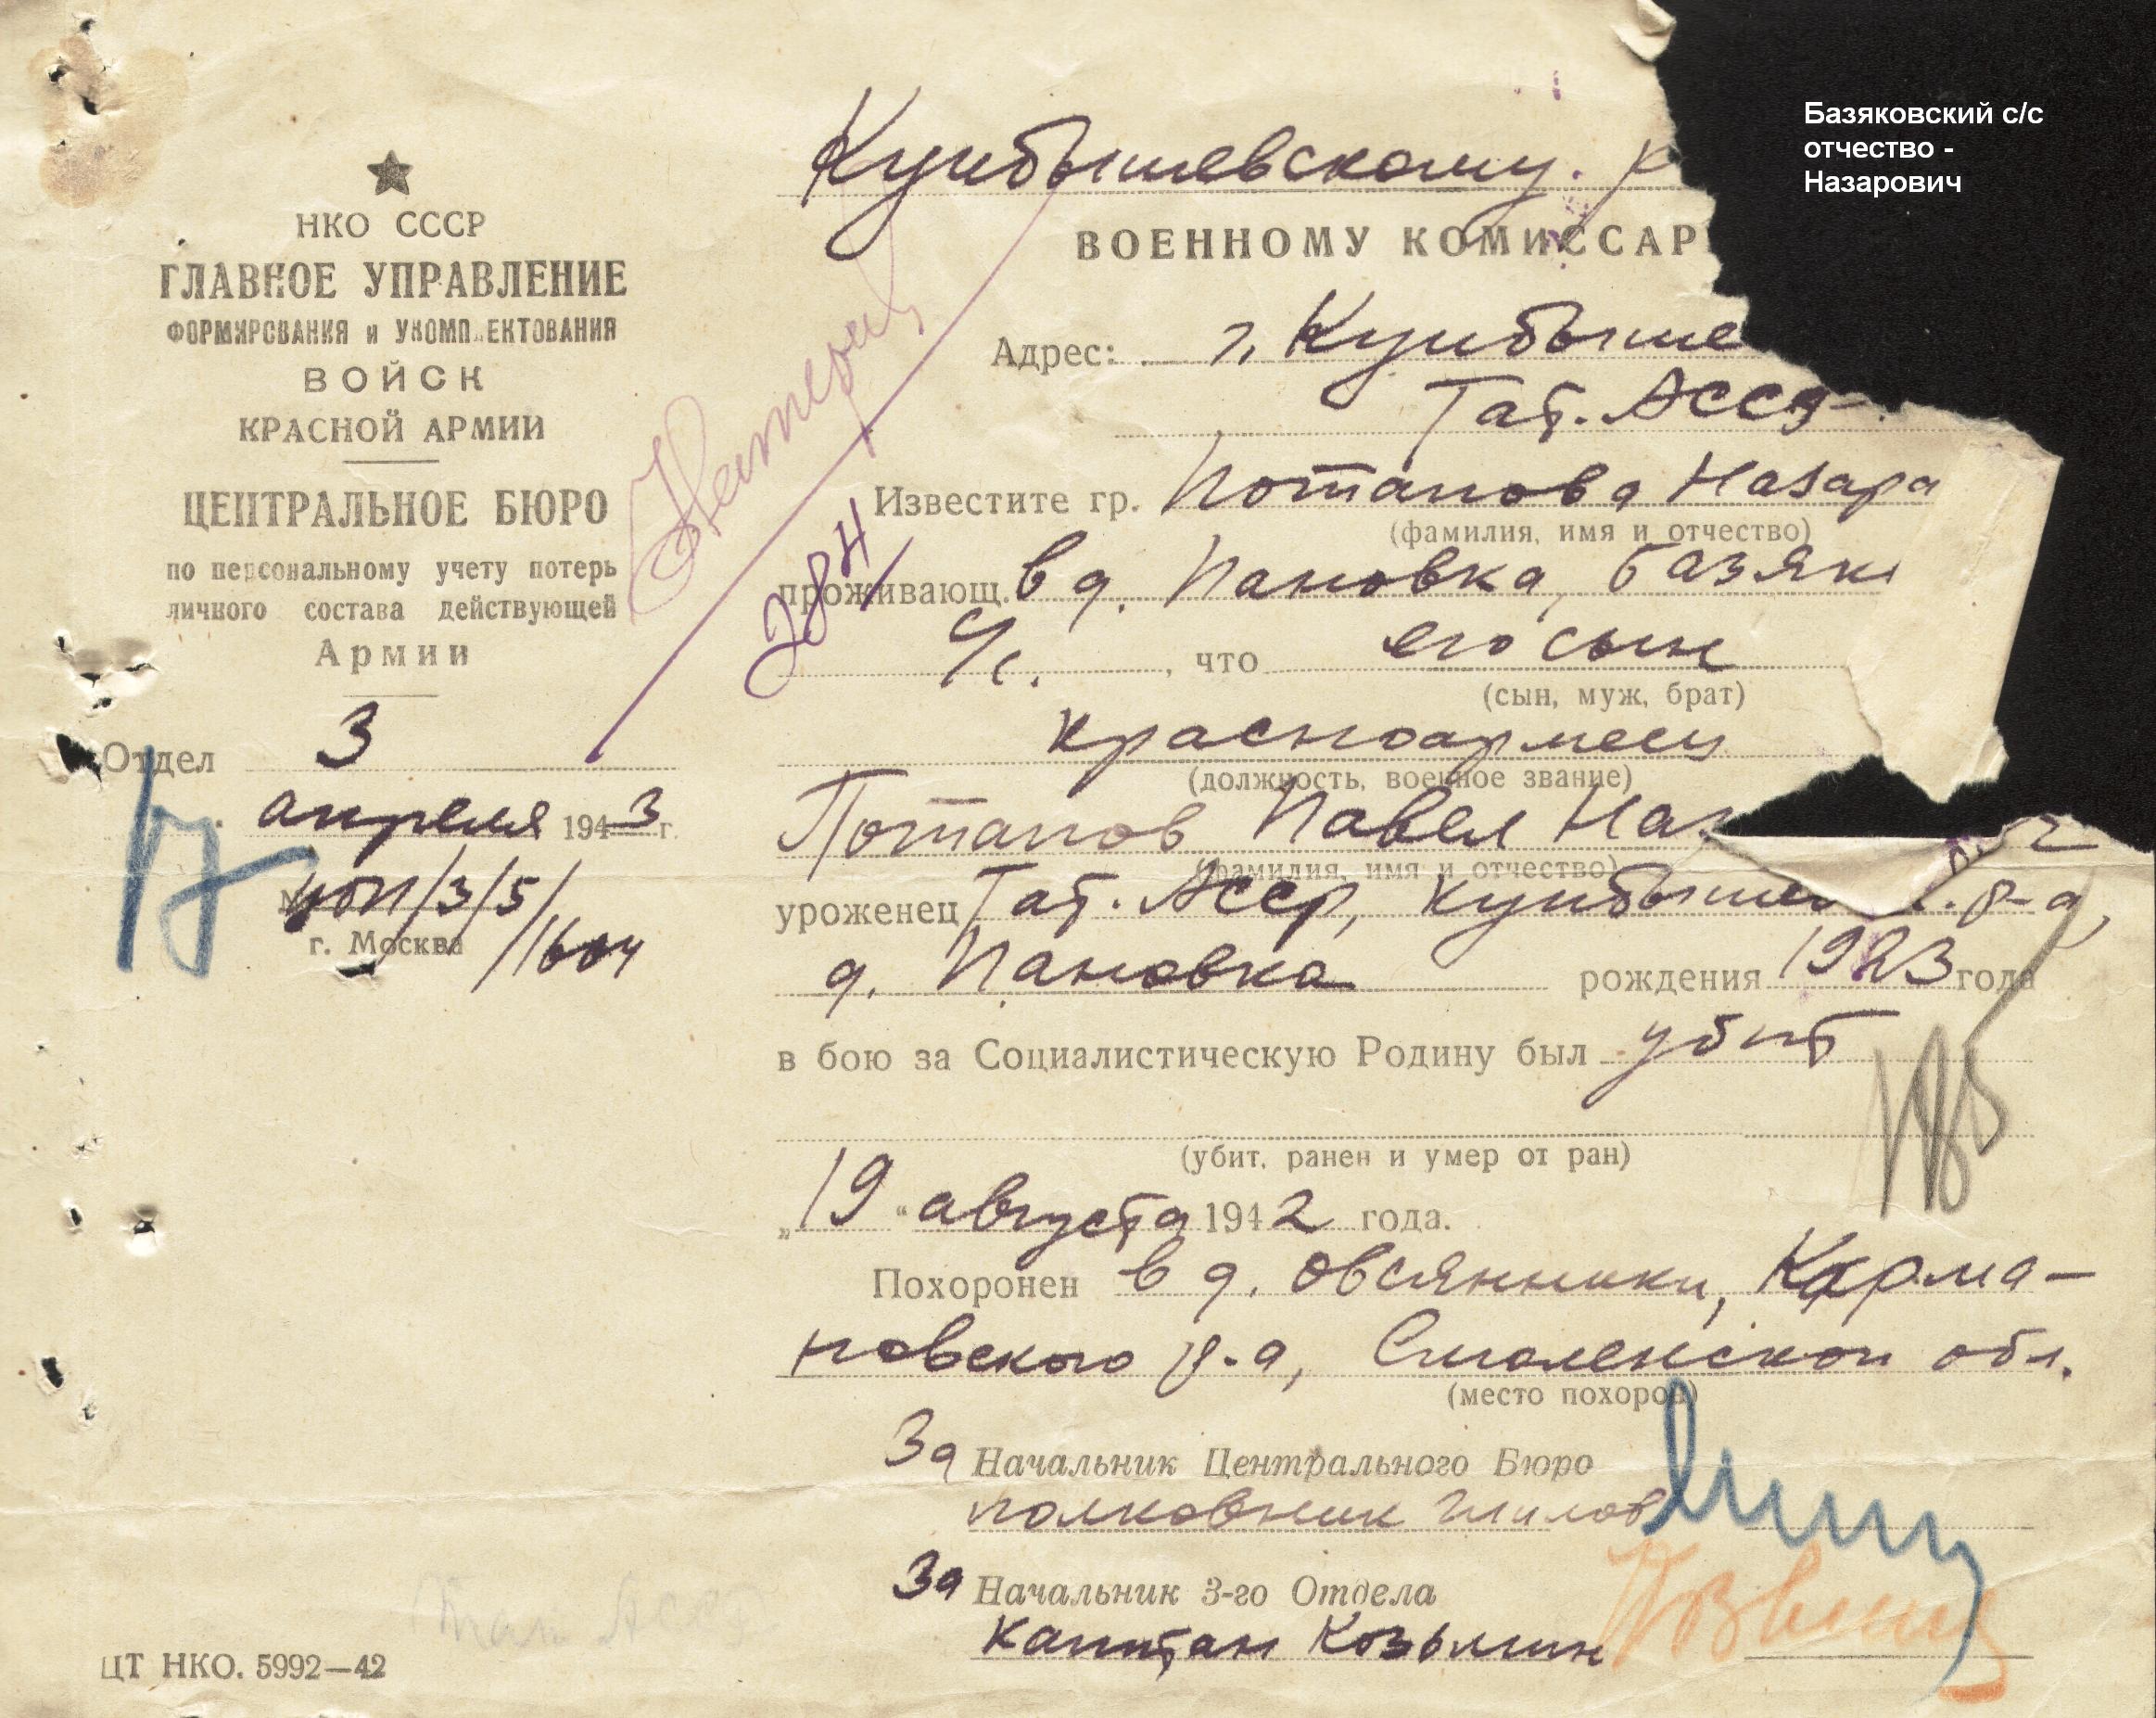 Базяковский с/с
отчество -
Назарович
НКО СССР
ГЛАВНОЕ УПРАВЛЕНИЕ
ФОРМИРОВАНИЯ и УКОМПЛЕКТОВАНИЯ
ВОЙСК
КРАСНОЙ АРМИИ
ЦЕНТРАЛЬНОЕ БЮРО
по персональному учету потерь
личного состава действующей
Армии
Отдел 3
апреля 1943 г.
/3/5/
г. Москва
ЦТ НКО. 5992—42
Куйбышевскому.
ВОЕННОМУ КОМИССАР
Адрес: г. Куйбыше
Тат. АССР.
284
Известите гр. Потапова Назара
(фамилия, имя и отчество)
проживающ. в д. Пановка, Базяк
с/с. , что его сын
(сын, муж, брат)
красноармеец
(должность, военное звание)
Потапов Павел Наз
(фамилия, имя и отчество)
уроженец Тат. АССР, Куйбышев р-а,
д. Пановка рождения 1923 года
в бою за Социалистическую Родину был убит
(убит, ранен и умер от ран)
„19“ августа 1942 года.
Похоронен в д. Овсянники, Карма-
новского р-а, Смоленской обл.
(место похорон)
За Начальник Центрального Бюро
полковник Шилов
За Начальник 3-го Отдела
капитан Козьмин